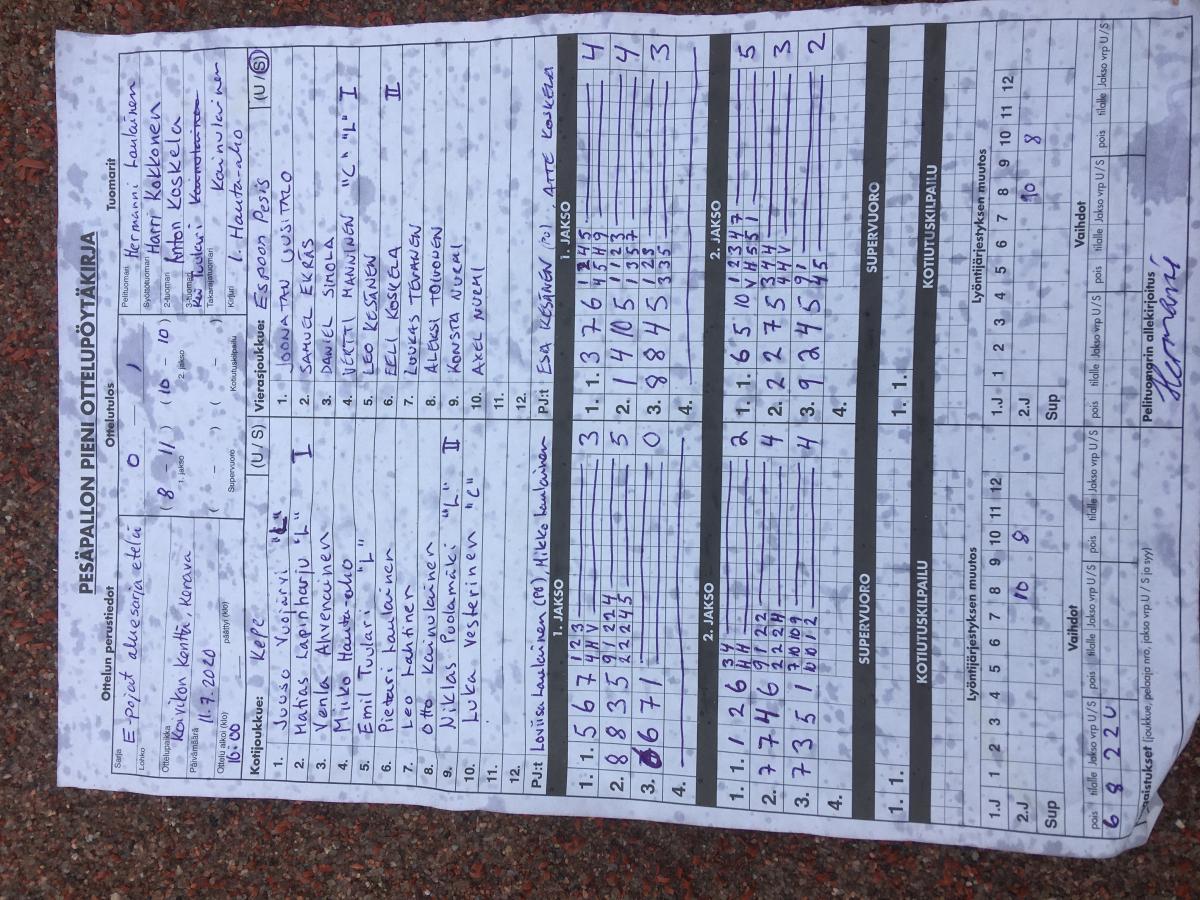 PESÄPALLON PIENI OTTELUPÖYTÄKIRJA
Ottelun perustiedot Ottelutulos Tuomarit
Sarja E-pojat aluesarja etelä
Lohko
Ottelupaikka Koivikon kenttä, Kerava
Päivämäärä 11.7.2020
Ottelu alkoi (klo) 16:00 päättyi (klo)
0 — 1
(8 - 11) (10 - 10)
1. jakso 2. jakso
( - ) ( - )
Supervuoro Kotiutuskilpailu
Pelituomari Hermanni Laulainen
Syöttötuomari Harri Kokkonen
2-tuomari Anton Koskela
3-tuomari
Takarajatuomari Kainulainen
Kirjuri I. Hauta-aho
Kotijoukkue: KePe (U / S)
1. Juuso Vuojärvi "L"
2. Matias Lapinharju "L" I
3. Venla Ahvenainen
4. Miiko Hauta-aho
5. Emil Tuulari "L"
6. Pietari Laulainen
7. Leo Lahtinen
8. Otto Kainulainen
9. Niklas Puolamäki "L" II
10. Luka Vesterinen "C"
11.
12.
PJ:t Loviisa Laulainen (PO), Mikko Laulainen
Vierasjoukkue: Espoon Pesis (U / S)
1. JOONATAN UUSITALO
2. SAMUEL EKRÄS
3. DANIEL SIMOLA
4. VERTTI MANNINEN "C" "L" I
5. LEO KESÄNEN
6. EELI KOSKELA II
7. LUUKAS TEVANEN
8. ALEKSI TOIVONEN
9. KONSTA NURMI
10. AXEL NURMI
11.
12.
PJ:t ESA KESÄNEN (PO), ATTE KOSKELA
1. JAKSO
1. 1. 5 6 7 1 2 3 3
4 H V
2. 8 8 3 5 9 1 2 2 4 5
2 2 2 4 5
3. 6 7 1 0
4.
1. JAKSO
1. 1. 3 7 6 1 2 4 5 4
4 5 H 9
2. 1 4 10 5 1 1 2 3 4
1 3 5 7
3. 8 8 4 5 1 2 3 3
3 3 5
4.
2. JAKSO
1. 1. 1 2 6 3 4 2
H H
2. 7 7 4 6 9 1 2 2 4
2 2 2 H
3. 7 3 5 1 7 10 10 9 4
10 10 1 2
4.
2. JAKSO
1. 1. 6 5 10 1 2 3 4 7 5
V H 5 5 1
2. 2 2 7 5 3 4 H 3
4 4 V
3. 9 2 4 5 9 1 2
4 5
4.
SUPERVUORO SUPERVUORO
1. 1. 1. 1.
KOTIUTUSKILPAILU KOTIUTUSKILPAILU
Lyöntijärjestyksen muutos Lyöntijärjestyksen muutos
1.J 1 2 3 4 5 6 7 8 9 10 11 12 1.J 1 2 3 4 5 6 7 8 9 10 11 12
2.J 10 8 2.J 10 8
Sup Sup
Vaihdot Vaihdot
pois tilalle Jakso vrp U / S pois tilalle Jakso vrp U / S pois tilalle Jakso vrp U / S pois tilalle Jakso vrp U / S pois tilalle Jakso vrp U / S pois tilalle Jakso vrp U / S
6 8 2 2 U
(joukkue, pelaaja nro, jakso vrp U / S ja syy)
Pelituomarin allekirjoitus
Hermanni